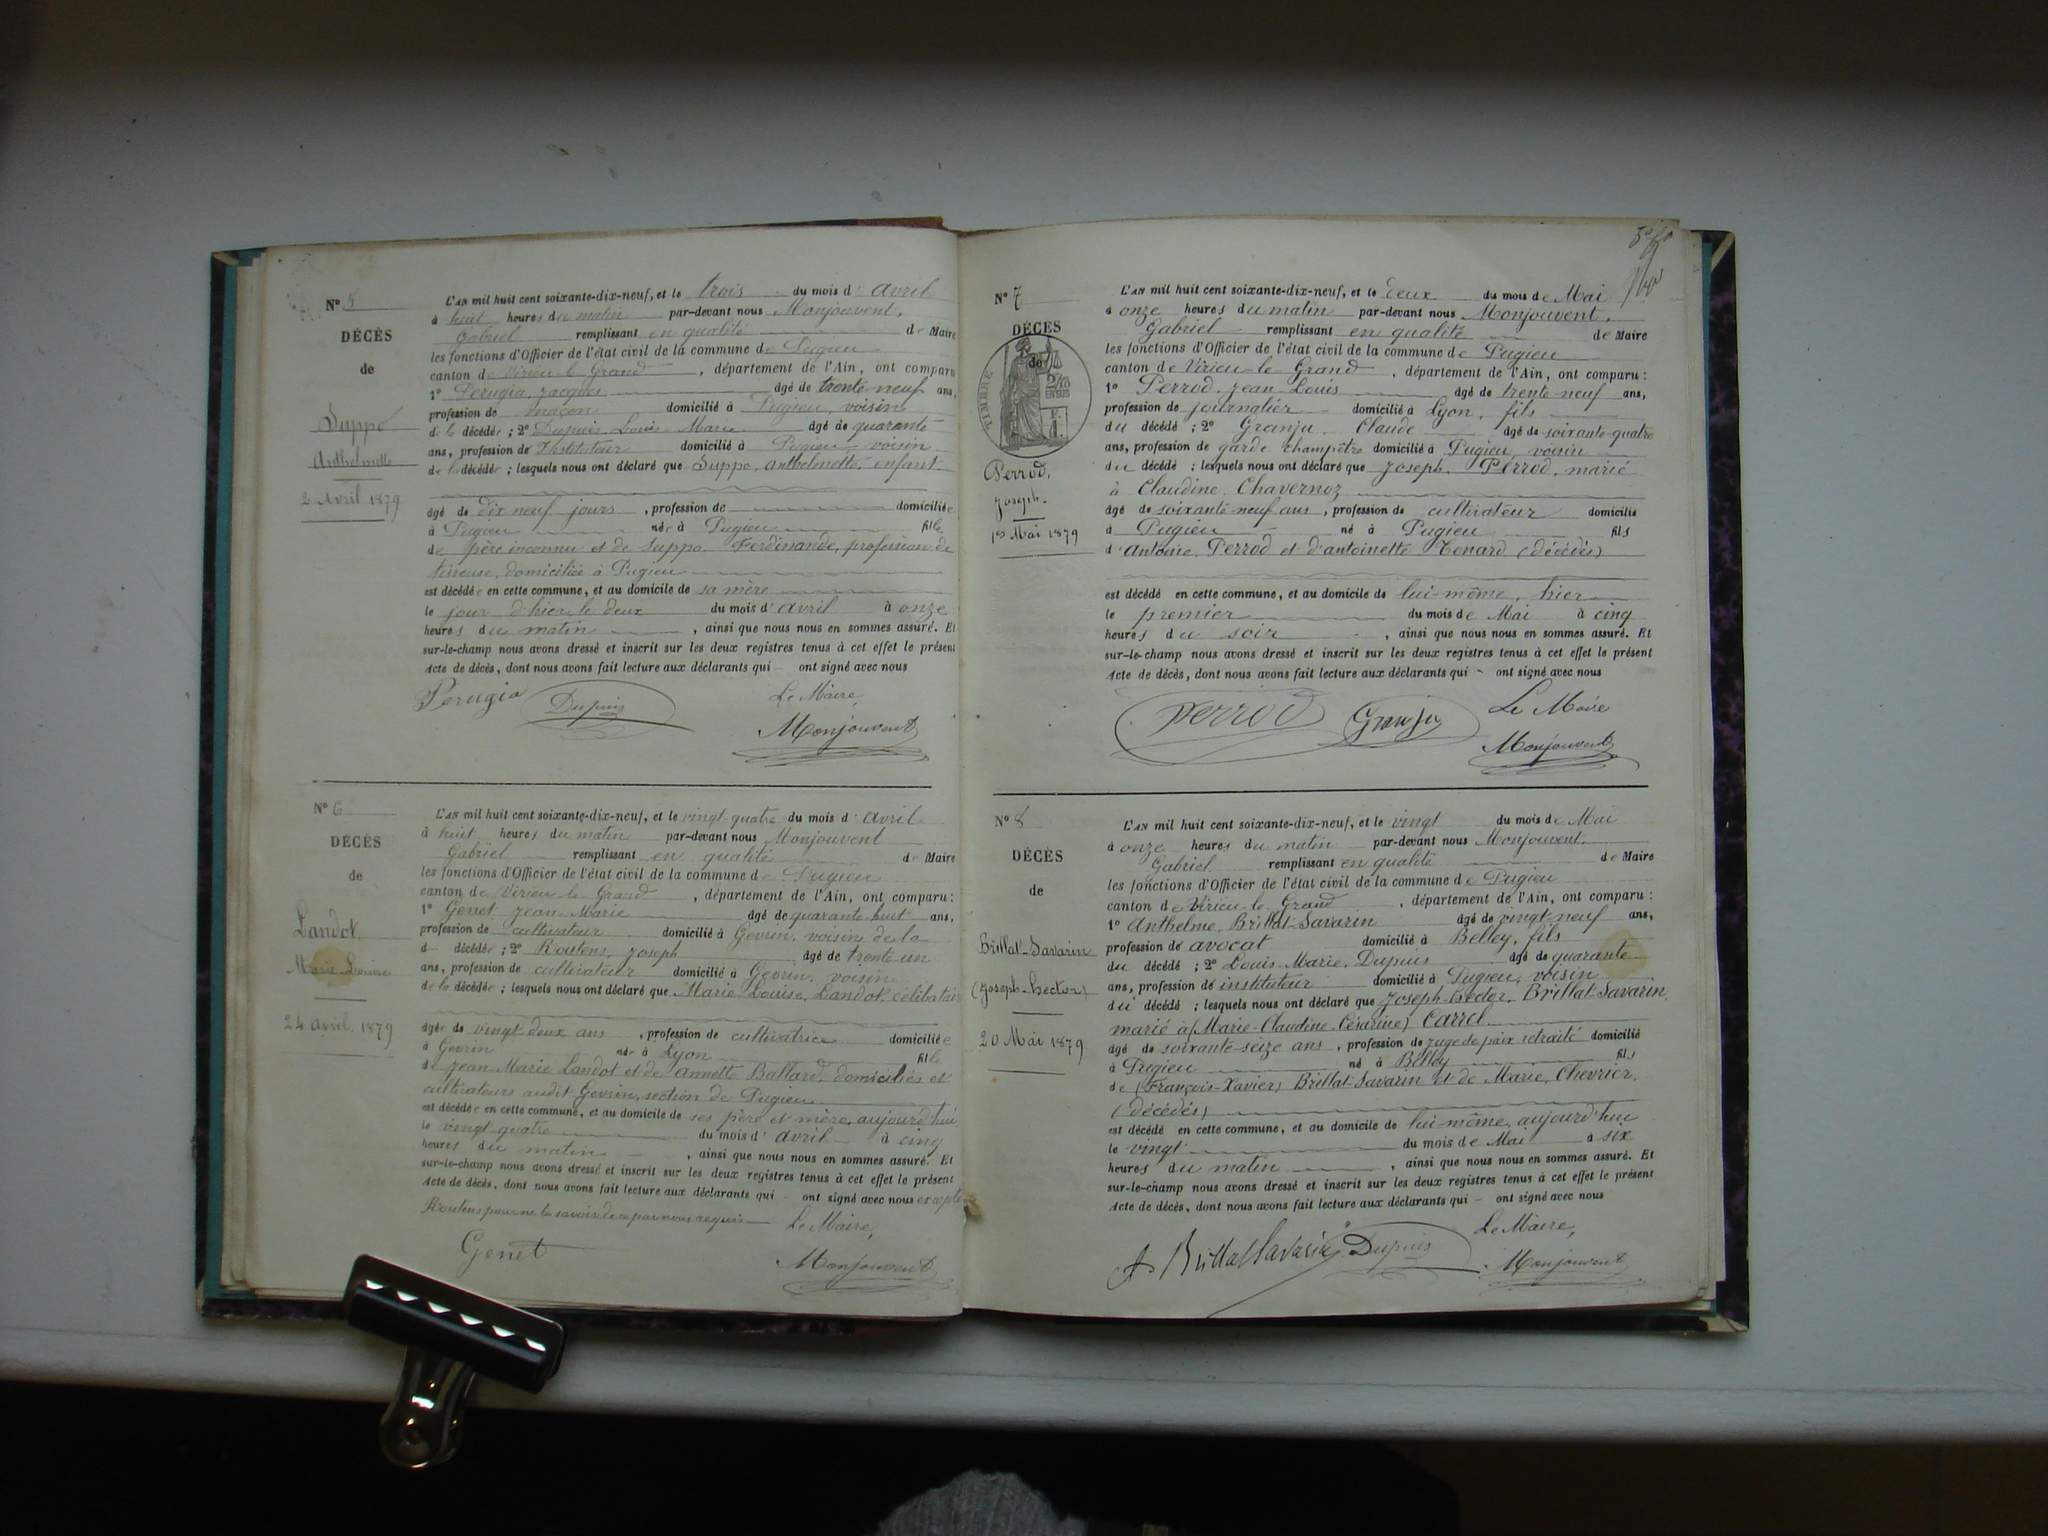 N° 5
DÉCÈS
de
Suppo
Anthelmette
2 Avril 1879
L'AN mil huit cent soixante-dix-neuf, et le trois du mois d'avril
à huit heures du matin par-devant nous Monjouvent,
Gabriel remplissant en qualité de Maire
les fonctions d'Officier de l'état civil de la commune de Pugieu
canton de Virieu-le-Grand, département de l'Ain, ont comparu
1° Perugia, Jacques âgé de trente-neuf ans,
profession de maçon domicilié à Pugieu, voisin
de la décédée ; 2° Dupuis, Louis-Marie âgé de quarante
ans, profession de Instituteur domicilié à Pugieu voisin
de la décédée ; lesquels nous ont déclaré que Suppo, anthelmette, enfant
âgé de dix neuf jours, profession de domiciliée
à Pugieu née à Pugieu fille
de père inconnu et de Suppo. Ferdinande, profession de
tisseuse, domiciliée à Pugieu
est décédée en cette commune, et au domicile de sa mère
le jour d'hier le deux du mois d'avril à onze
heures du matin, ainsi que nous nous en sommes assuré. Et
sur-le-champ nous avons dressé et inscrit sur les deux registres tenus à cet effet le présent
acte de décès, dont nous avons fait lecture aux déclarants qui ont signé avec nous
Perugia Dupuis Le Maire,
Monjouvent
N° 6
DÉCÈS
de
Landot
Marie-Louise
24 avril 1879
L'AN mil huit cent soixante-dix-neuf, et le vingt-quatre du mois d'avril
à huit heures du matin par-devant nous Monjouvent
Gabriel remplissant en qualité de Maire
les fonctions d'Officier de l'état civil de la commune de Pugieu
canton de Virieu-le-Grand, département de l'Ain, ont comparu :
1° Genet, Jean-Marie âgé de quarante huit ans,
profession de cultivateur domicilié à Gevrin, voisin de la
d décédée ; 2° Routens, Joseph âgé de trente-un
ans, profession de cultivateur domicilié à Gevrin, voisin
de la décédée ; lesquels nous ont déclaré que Marie-Louise, Landot, célibataire
âgée de vingt-deux ans, profession de cultivatrice domiciliée
à Gevrin née à Lyon fille
de Jean-Marie Landot et de annette Ballard, domiciliés et
cultivateurs audit Gevrin, section de Pugieu
est décédée en cette commune, et au domicile de ses père et mère, aujourd'hui
le vingt-quatre du mois d'avril à cinq
heures du matin, ainsi que nous nous en sommes assuré. Et
sur-le-champ nous avons dressé et inscrit sur les deux registres tenus à cet effet le présent
acte de décès, dont nous avons fait lecture aux déclarants qui ont signé avec nous excepté
Routens pour ne le savoir de ce par nous requis Le Maire,
Genet Monjouvent
N° 7
DÉCÈS
de
TIMBRE
Perrod,
Joseph
1er Mai 1879
L'AN mil huit cent soixante-dix-neuf, et le deux du mois de Mai
à onze heures du matin par-devant nous Monjouvent,
Gabriel remplissant en qualité de Maire
les fonctions d'Officier de l'état civil de la commune de Pugieu
canton de Virieu-le-Grand, département de l'Ain, ont comparu :
1° Perrod, Jean-Louis âgé de trente-neuf ans,
profession de journalier domicilié à Lyon, fils
du décédé ; 2° Granju Claude âgé de soixante-quatre
ans, profession de garde champêtre domicilié à Pugieu, voisin
du décédé ; lesquels nous ont déclaré que Joseph, Perrod, marié
à Claudine Chavernoz
âgé de soixante-neuf ans, profession de cultivateur domicilié
à Pugieu né à Pugieu fils
d'Antoine Perrod et d'antoinette Tenard (décédés)
est décédé en cette commune, et au domicile de lui-même, hier
le premier du mois de Mai à cinq
heures du soir, ainsi que nous nous en sommes assuré. Et
sur-le-champ nous avons dressé et inscrit sur les deux registres tenus à cet effet le présent
acte de décès, dont nous avons fait lecture aux déclarants qui ont signé avec nous
Perrod Granju Le Maire
Monjouvent
N° 8
DÉCÈS
de
Brillat-Savarin
(Joseph-hector)
20 Mai 1879
L'AN mil huit cent soixante-dix-neuf, et le vingt du mois de Mai
à onze heures du matin par-devant nous Monjouvent
Gabriel remplissant en qualité de Maire
les fonctions d'Officier de l'état civil de la commune de Pugieu
canton de Virieu-le-Grand, département de l'Ain, ont comparu :
1° Anthelme, Brillat-Savarin âgé de vingt-neuf ans,
profession de avocat domicilié à Belley, fils
du décédé ; 2° Louis-Marie, Dupuis âgé de quarante
ans, profession de instituteur domicilié à Pugieu, voisin
du décédé ; lesquels nous ont déclaré que Joseph-hector, Brillat-Savarin,
marié à (Marie-Claudine-Césarine) Carrel
âgé de soixante-seize ans, profession de juge de paix retraité domicilié
à Pugieu né à Belley fils
de (François-Xavier) Brillat-Savarin et de Marie, Chevrier,
(décédés)
est décédé en cette commune, et au domicile de lui-même, aujourd'hui
le vingt du mois de Mai à six
heures du matin, ainsi que nous nous en sommes assuré. Et
sur-le-champ nous avons dressé et inscrit sur les deux registres tenus à cet effet le présent
acte de décès, dont nous avons fait lecture aux déclarants qui ont signé avec nous
A Brillat Savarin Dupuis Le Maire,
Monjouvent